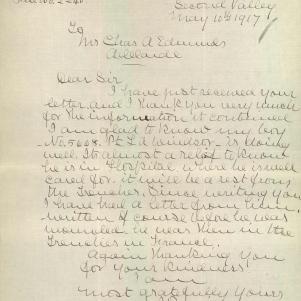 Second Valley
May 10th 1917
To
Mr Chas A Edmunds
Adelaide
Dear Sir
I have just received your
letter and I thank you very much
for the information it contained
I am glad to know my boy
No. 5668. Pt L A Windsor is doing
well. Its almost a relief to know
he is in Hospital where he is well
cared for. it will be a rest from
the trenches. Since writing you
I have had a letter from him
written of course before he was
wounded he was then in the
trenches in France.
Again thanking you
for your kindness
I am
most gratefully yours